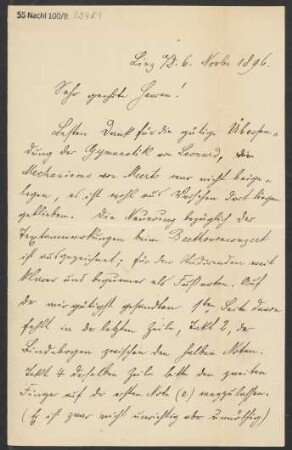 55 Nachl 100/B,
Linz a/D. 6. Novbr 1896.
Sehr geehrte Herren!
Besten Dank für die gütige Übersen-
dung der Gymnastik von Leonard, die
Mechanismen von Meerts war nicht beige-
legen, es ist wohl aus Versehen dort liegen
geblieben. Die Neuerung bezüglich der
Textanmerkungen beim Beethovenconzert
ist ausgezeichnet; für den Studirenden weit
klarer und bequemer als Fußnoten. Auf
der mir gütigst gesandten 1ten Seite davon
fehlt in der letzten Zeile, Takt 2, der
Bindebogen zwischen den halben Noten.
Takt 4 derselben Zeile bitte den zweiten
Finger auf der ersten Note (e) wegzulassen.
(Es ist zwar nicht unrichtig aber unnöthig)